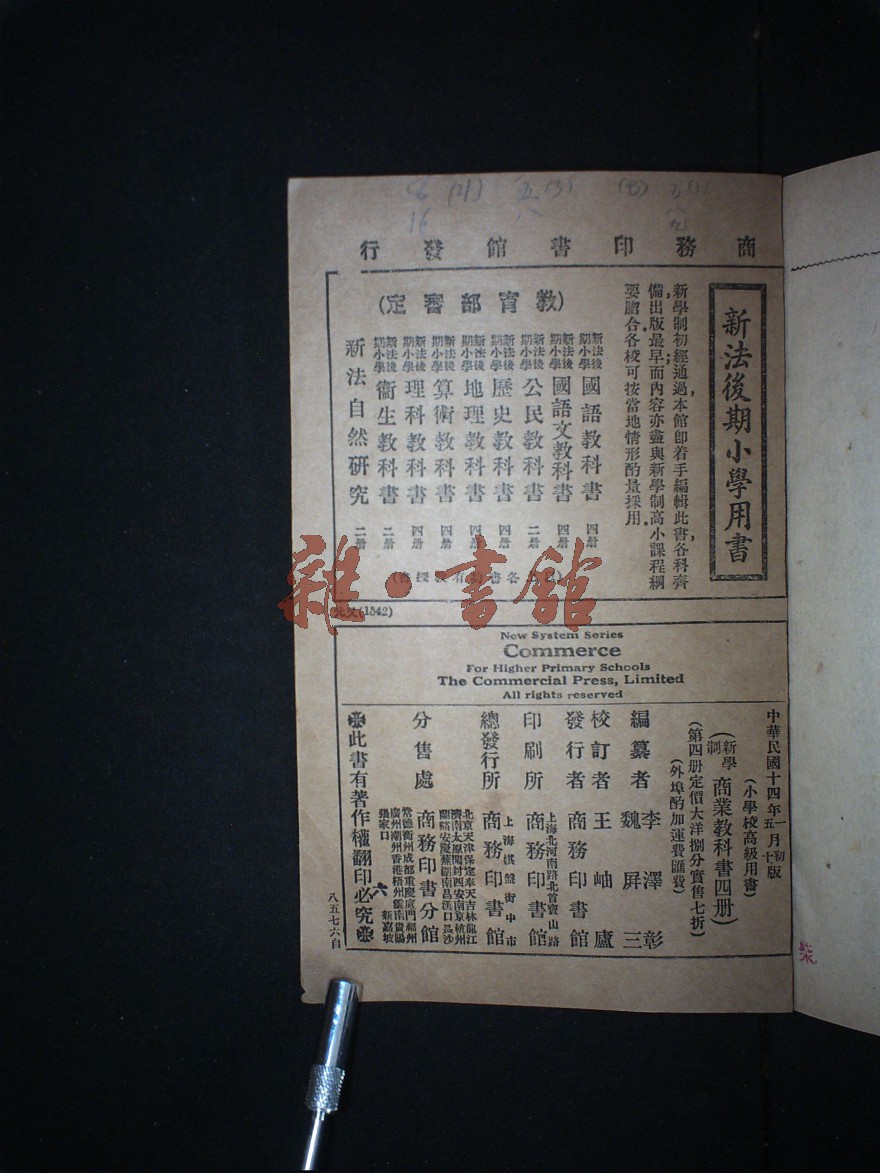 商務印書館發行
新法後期小學用書
新學制初經通過，本館卽着手編輯此書，各科齊
備，出版最早；而內容亦盡與新學制高小課程綱
要脗合，各校可按當地情形酌量採用．
(教育部審定)
新法後期小學 國語教科書 四册
新法後期小學 國語文教科書 四册
新法後期小學 公民教科書 二册
新法後期小學 歷史教科書 四册
新法後期小學 地理教科書 四册
新法後期小學 算術教科書 四册
新法後期小學 理科教科書 四册
新法後期小學 衞生教科書 二册
新法自然研究 二册
各書均有教授書)
雜·書館
(1542)
New System Series
Commerce
For Higher Primary Schools
The Commercial Press, Limited
All rights reserved
中華民國十四年一月初版
五 十
(小學校高級用書)
(新學制 商業教科書四册)
(第四册定價大洋捌分實售七折)
(外埠酌加運費匯費)
編纂者 李澤彰
魏屏三
校訂者 王岫廬
發行者 商務印書館
印刷所 上海北河南路北首寶山路
商務印書館
總發行所 上海棋盤街中市
商務印書館
分售處 北京天津保定奉天吉林龍江
濟南太原開封西安南京杭州
蘭谿安慶蕪湖南昌漢口長沙
商務印書分館
常德衡州成都重慶廈門福州
廣州潮州香港梧州雲南貴陽
張家口 新嘉坡
六
此書有著作權翻印必究
八五七六自